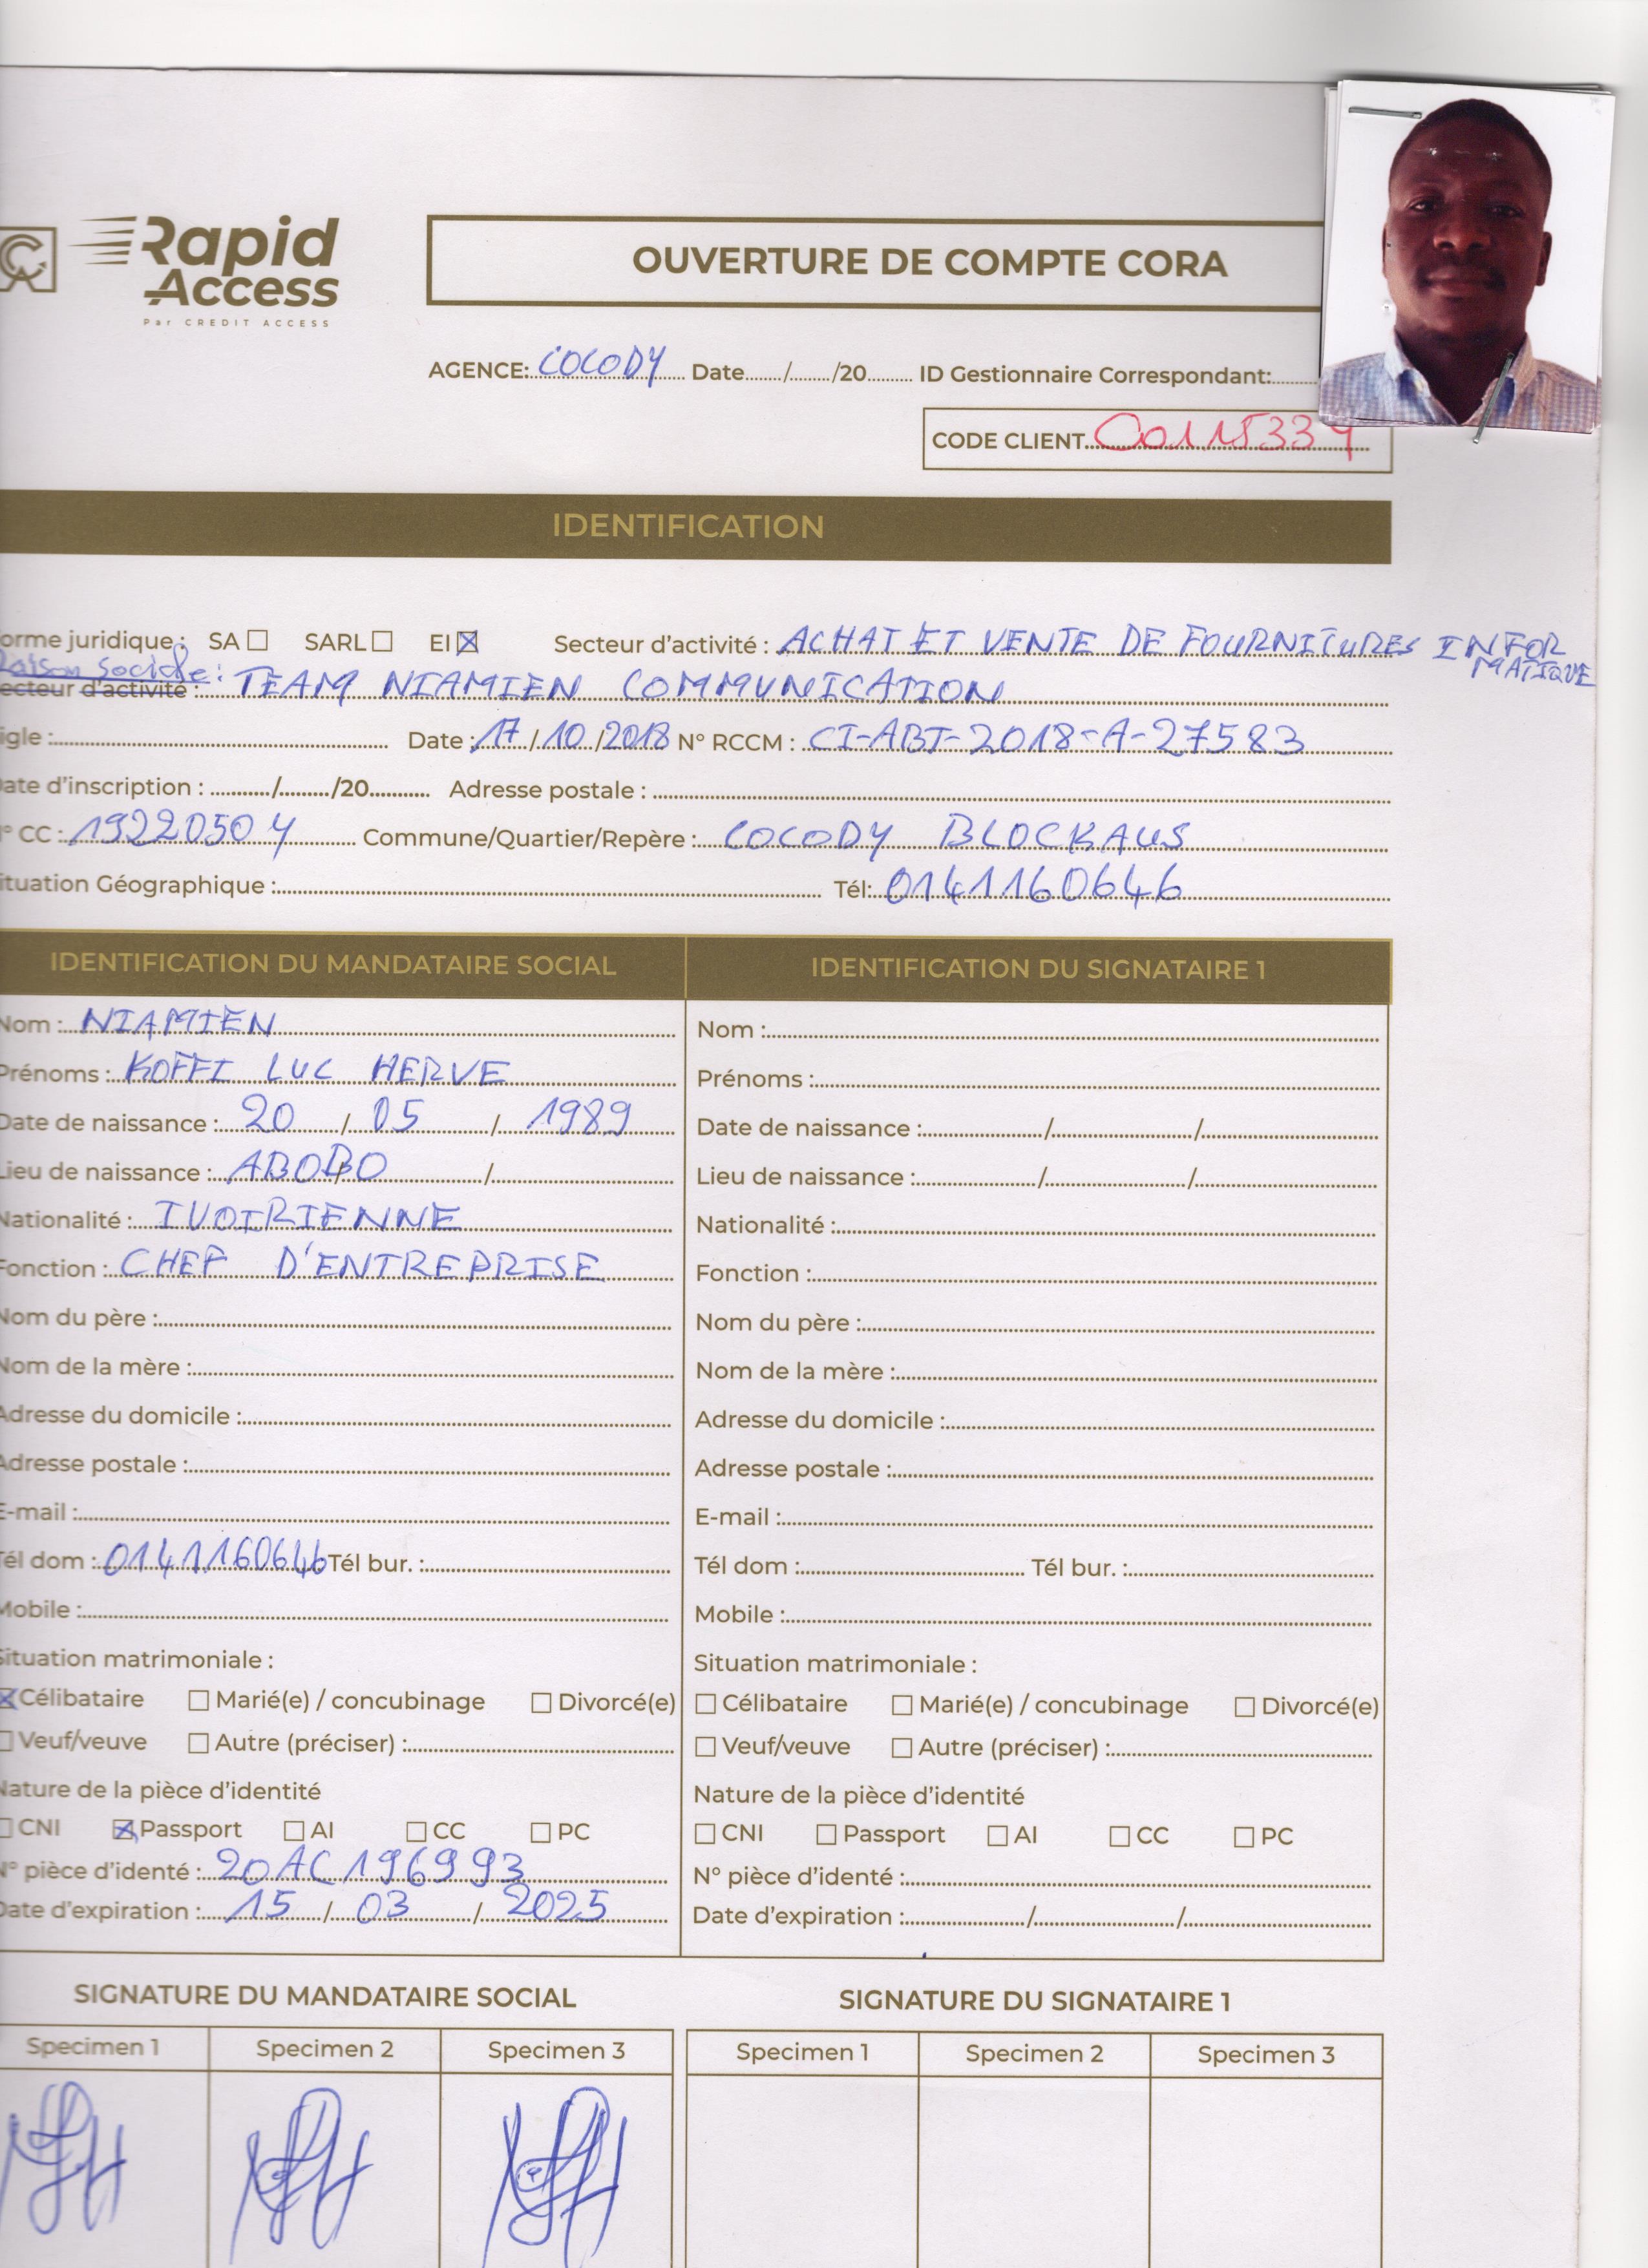 Rapid
Access
Par CREDIT ACCESS
OUVERTURE DE COMPTE CORA
AGENCE: COCODY Date....../....../20...... ID Gestionnaire Correspondant:
CODE CLIENT
IDENTIFICATION
orme juridique : SA ☐ SARL ☐ EI ☒ Secteur d'activité : ACHAT ET VENTE DE FOURNITURES INFOR
MATIQUE
Raison sociale :
ecteur d'activité : TEAM NIAMIEN COMMUNICATION
igle : Date : 17 / 10 / 2018 N° RCCM : CI-ABJ-2018-A-27583
ate d'inscription : ....../....../20...... Adresse postale :
° CC : 1922050 Y Commune/Quartier/Repère : COCODY BLOCKAUS
ituation Géographique : Tél: 0141160646
IDENTIFICATION DU MANDATAIRE SOCIAL
Nom : NIAMIEN
Prénoms : KOFFI LUC HERVE
Date de naissance : 20 / 05 / 1989
Lieu de naissance : ABOBO / /
Nationalité : IVOIRIENNE
Fonction : CHEF D'ENTREPRISE
Nom du père :
Nom de la mère :
Adresse du domicile :
Adresse postale :
E-mail :
Tél dom : 0141160646 Tél bur. :
Mobile :
Situation matrimoniale :
☒ Célibataire ☐ Marié(e) / concubinage ☐ Divorcé(e)
☐ Veuf/veuve ☐ Autre (préciser) :
Nature de la pièce d'identité
☐ CNI ☒ Passport ☐ AI ☐ CC ☐ PC
N° pièce d'identé : 20AC196993
Date d'expiration : 15 / 03 / 2025
IDENTIFICATION DU SIGNATAIRE 1
Nom :
Prénoms :
Date de naissance : / /
Lieu de naissance : / /
Nationalité :
Fonction :
Nom du père :
Nom de la mère :
Adresse du domicile :
Adresse postale :
E-mail :
Tél dom : Tél bur. :
Mobile :
Situation matrimoniale :
☐ Célibataire ☐ Marié(e) / concubinage ☐ Divorcé(e)
☐ Veuf/veuve ☐ Autre (préciser) :
Nature de la pièce d'identité
☐ CNI ☐ Passport ☐ AI ☐ CC ☐ PC
N° pièce d'identé :
Date d'expiration : / /
SIGNATURE DU MANDATAIRE SOCIAL
Specimen 1 Specimen 2 Specimen 3
SIGNATURE DU SIGNATAIRE 1
Specimen 1 Specimen 2 Specimen 3